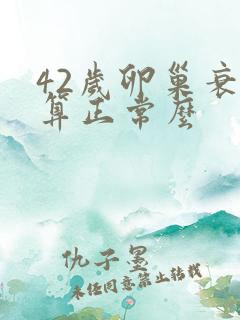 42歲卵巢衰
算正常麼
仇子墨
未经同意禁止转载